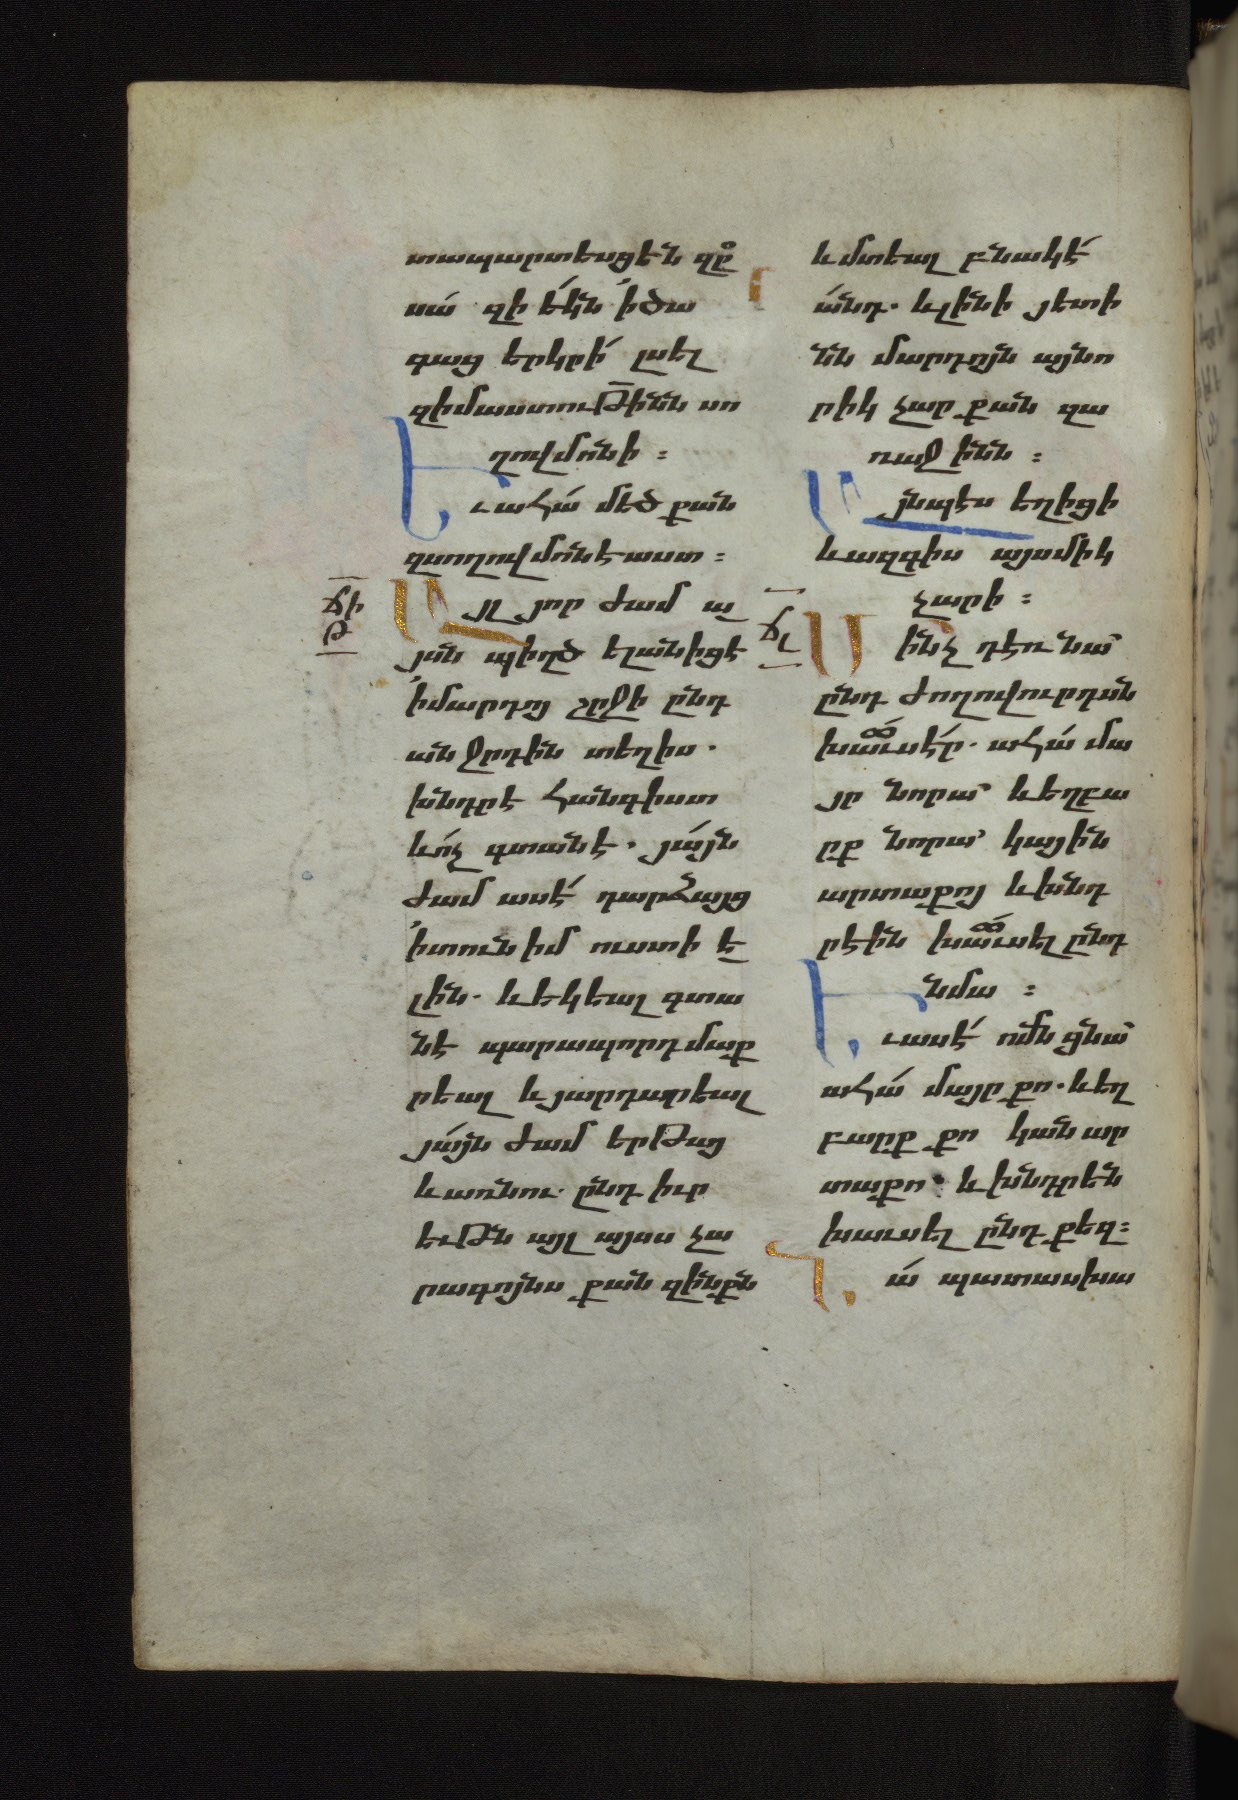 տապարտեսցեն զը
սա՛ զի ե՛կն ՚ի ծա
գաց երկրի՛ լսել
զիմաստութի̅նն սո
ղովմո՛նի ։
Եւ ահա՛ մեծ քան
զսողովմո՛ն է աստ ։
ՃԻԹ
Այլ յորժամ ա
յսն պիղծ ելանիցէ
՚ի մարդոյ շրջի ընդ
անջրդին տեղիս .
խնդրէ հանգիստ
և ո՛չ գտանէ . յա՛յն
ժամ ասէ՛ դարձայց
՚ի տուն իմ ուստի ե
լին . և եկեալ գտա
նէ պարապորդ մաք
րեալ և յարդարեալ
յա՛յն ժամ երթայ
և առնու ընդ իւր
եւթն այլ այսս չա
րագոյնս քան զինքն
և մտեալ բնակէ՛
անդ . և լինի յետի
նն մարդոյն այնո
րիկ չար քան զա
ռաջինն ։
Այնպէս եղիցի
և ազգիս այսմիկ
չարի ։
ՃԼ
Մինչ դեռ նա՛
ընդ ժողովուրդսն
խաւսէր . ահա՛ մա
յր նորա՛ և եղբա
րք նորա՛ կային
արտաքոյ և խնդ
րէին խաւսել ընդ
նմա ։
Եւ ասէ՛ ոմն ցնա՛
ահա՛ մայր քո . և եղ
բարք քո կան ար
տաքո . և խնդրեն
խաւսել ընդ քեզ ։
Նա՛ պատասխա